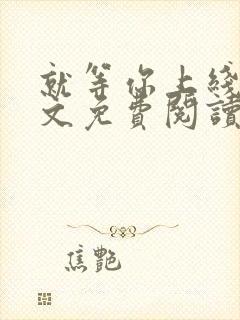 就等你上线
文免费阅读
焦艷